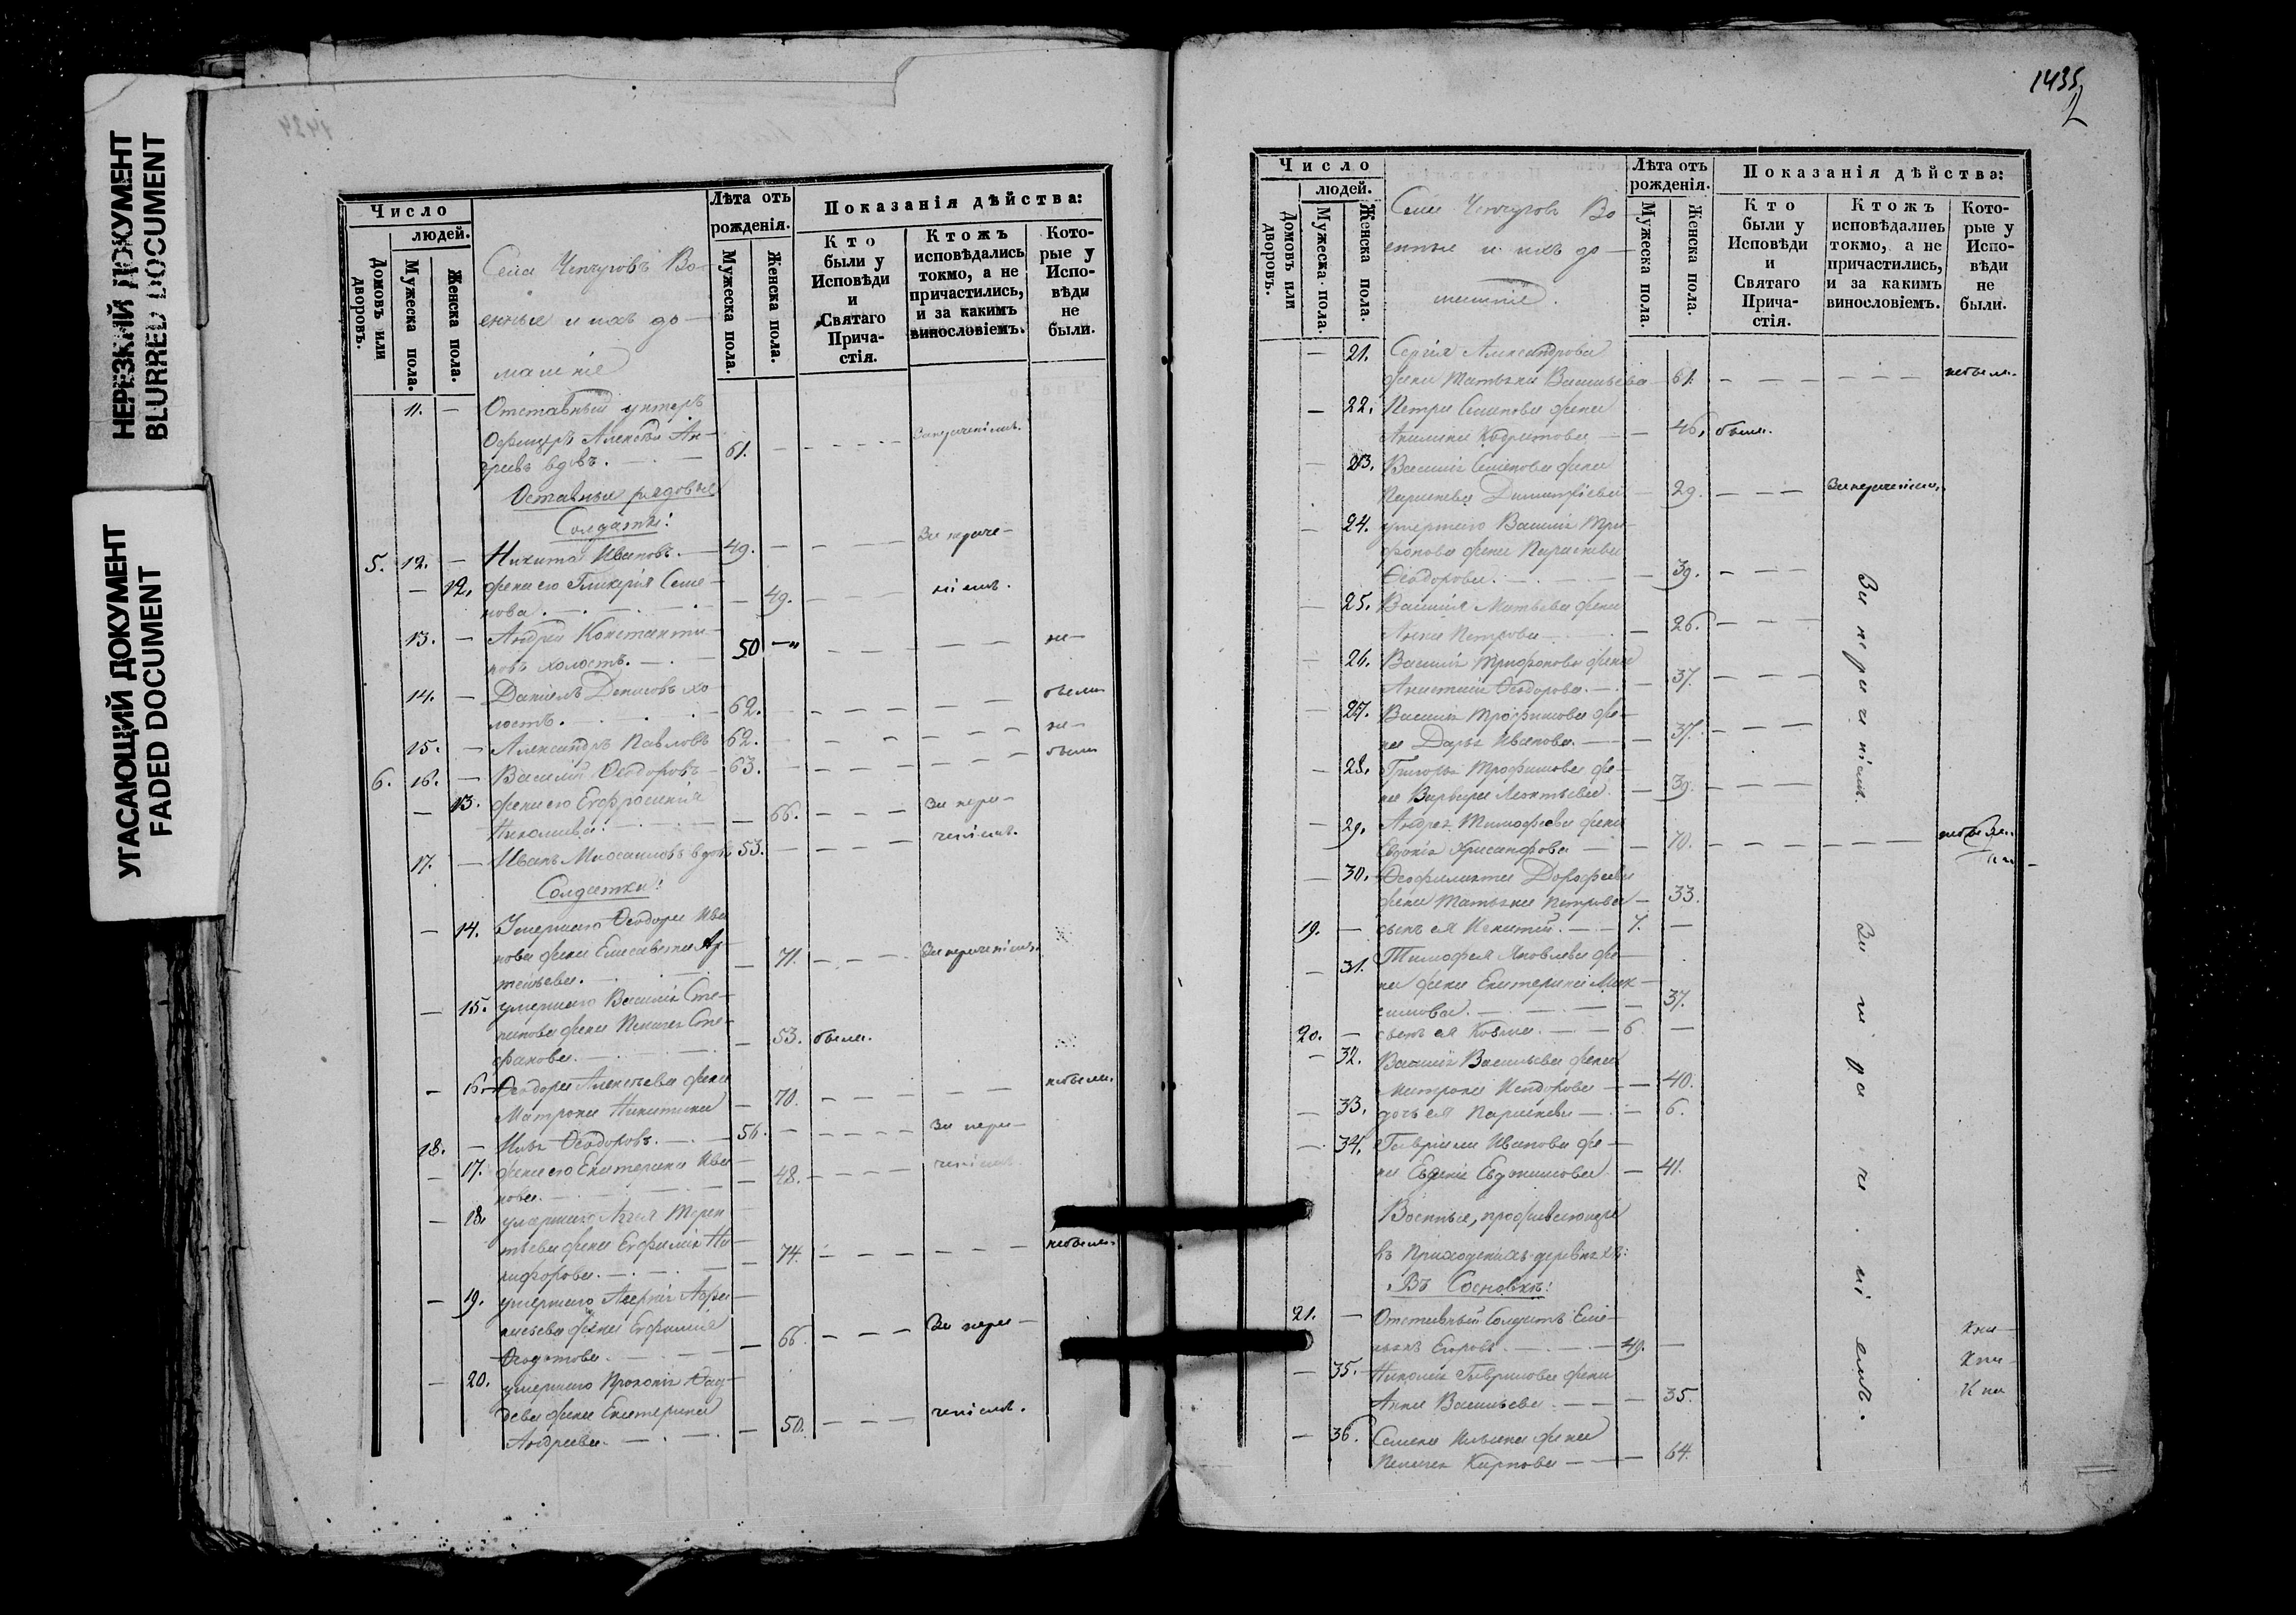 НЕРЕЗКИЙ ДОКУМЕНТ
BLURRED DOCUMENT
УГАСАЮЩИЙ ДОКУМЕНТ
FADED DOCUMENT
Число
людей.
Домовъ или дворовъ.
Мужеска пола.
Женска пола.
Села Чепчуговъ Во-
енные и ихъ до-
машніе
Лѣта отъ
рожденія.
Мужеска пола.
Женска пола.
Показанія дѣйства:
Кто
были у
Исповѣди
и
Святаго
Прича-
стія.
Ктожъ
исповѣдались
токмо, а не
причастились,
и за какимъ
винословіемъ.
Кото-
рые у
Испо-
вѣди
не
были.
11. — Отставный унтеръ
Офицеръ Алексѣй Ан-
вдовъ. — 61. — За нераченіемъ.
Оставные рядовые
Солдаты:
5. 12. — Никита Ивановъ. — 49. — За нераче-
— 12. жена его Гликерія Семе-
нова. — 49. — ніемъ.
13. — Андрей Константи-
новъ холостъ. — 50 — не-
14. — Даніилъ Денисовъ хо-
лостъ. — 62. — были
15. — Александръ Павловъ 62. — не-
6. 16. — Василій Ѳеодоровъ — 63. — были
— 13. жена его Евфросинія
Николаева. — 66. — За нера-
17. — Иванъ вдовъ 53. — ченіемъ.
Солдатки:
— 14. Умершаго Ѳеодора Ива-
нова жена Елисавета Ар-
темьева. — 71. — За нераченіемъ.
— 15. умершаго Василія Сте-
панова жена Пелагея Сте-
фанова. — 53. была.
— 16. Ѳеодора Алексѣева жена
Матрона Никитина — 70. — не была.
18. — Илья Ѳеодоровъ. — 56. — За нера-
— 17. жена его Екатерина Ива-
нова. — 48. — ченіемъ.
— 18. умершаго Терен-
тьева жена Евфимія Ни-
кифорова. — 74. — не была.
— 19. умершаго Аѳана-
сьева жена Евфимія
Ѳедотова. — 66. — За нера-
— 20. умершаго Прокопія Ѳад-
деева жена Екатерина
Андреева. — 50. — ченіемъ.
1435
2
Число
людей.
Домовъ или дворовъ.
Мужеска пола.
Женска пола.
Села Чепчуговъ Во-
енные и ихъ до-
машніе.
Лѣта отъ
рожденія.
Мужеска пола.
Женска пола.
Показанія дѣйства:
Кто
были у
Исповѣди
и
Святаго
Прича-
стія.
Ктожъ
исповѣдались
токмо, а не
причастились,
и за какимъ
винословіемъ.
Кото-
рые у
Испо-
вѣди
не
были.
— 21. Сергія Александрова
жена Татьяна Васильева — 61. — не была.
— 22. Петра Семенова жена
Акилина Кодратова — 46. была.
— 23. Василія Семенова жена
Параскева Димитріева — 29. — За нераченіемъ.
— 24. умершаго Василія Три-
фонова жена Параскева
Ѳеодорова. — 39. —
— 25. Василія Матвѣева жена
Анна Петрова — 26. —
— 26. Василія Трифонова жена
Анастасія Ѳеодорова. — 37. —
— 27. Василія Трофимова же-
на Дарья Иванова. — 37. —
— 28. Григорья Трофимова же-
на Варвара Леонтьева. — 39. —
За нераченіемъ.
— 29. Андрея Тимофеева жена
Евдокія Хрисанфова — 70. — не была.
— 30. Ѳеофилакта Дорофеева
жена Татьяна Петрова — 33.
19. — сынъ ея Игнатій. — 7. —
— 31. Тимофея Яковлева же-
на жена Екатерина Мак-
симова. — 37.
20. — сынъ ея Козма. — 6. —
— 32. Василія Васильева жена
Матрона Исидорова — 40.
— 33. дочь ея Параскева — 6.
— 34. Гавріила Иванова же-
на Евдокія Евдокимова — 41.
За нераченіемъ.
Военные, проживающіе
въ Приходскихъ деревняхъ:
Въ Сосновкѣ:
21. — Отставный Солдатъ Еме-
льянъ Егоровъ. — 49. —
— 35. Николая Гаврилова жена
Анна Васильева. — 35.
— 36. Семена Ильина жена
Пелагея Карпова — 64.